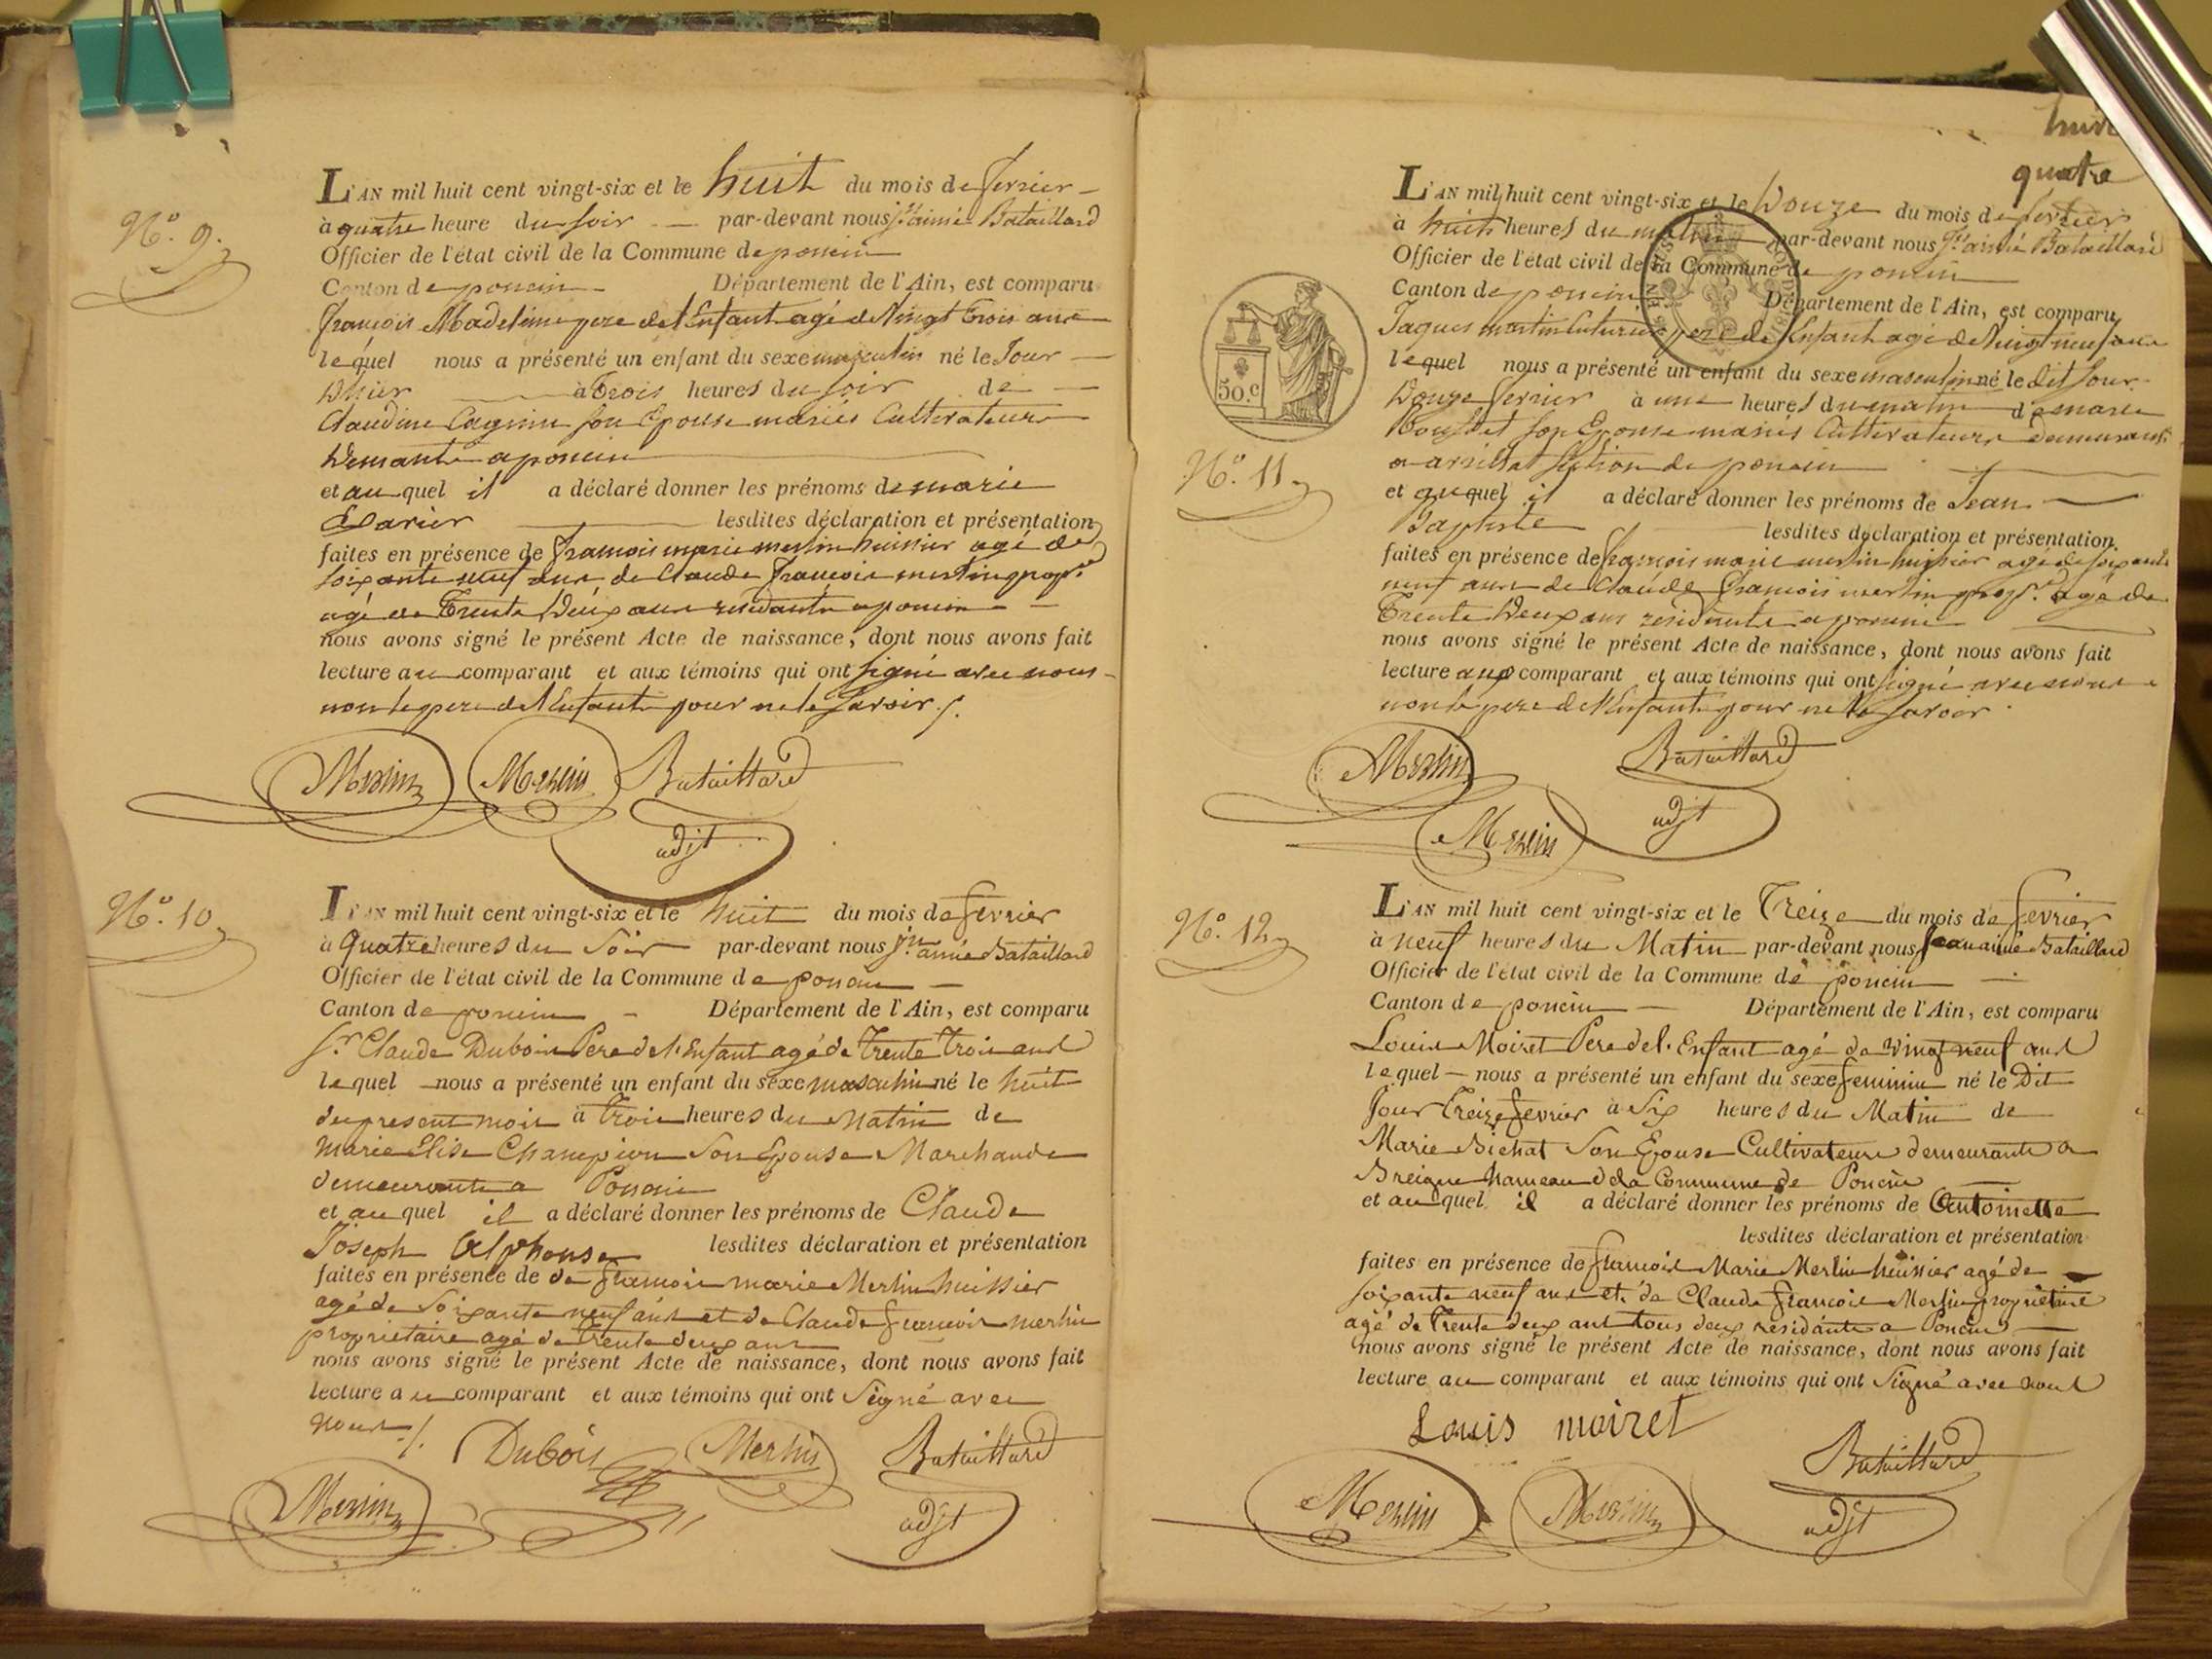 N.º 9.
L'AN mil huit cent vingt-six et le huit du mois de fevrier
à quatre heure du soir par-devant nous jn aimé Bataillard
Officier de l'état civil de la Commune de poncin
Canton de poncin Département de l'Ain, est comparu
françois Madeleine pere de l'Enfant agé de Vingt trois ans
lequel nous a présenté un enfant du sexe masculin né le Jour
D'hier à trois heures du soir de
Claudine son Epouse mariés Cultivateurs
a poncin
et au quel il a déclaré donner les prénoms de marie
Xavier lesdites déclaration et présentation
faites en présence de francois marie merlin huissier agé de
soixante neuf ans de Claude francois merlin propre
agé de Trente Deux ans residants a poncin
nous avons signé le présent Acte de naissance, dont nous avons fait
lecture au comparant et aux témoins qui ont signé avec nous
non le pere de l'Enfant pour ne le savoir ./.
Merlin Merlin Bataillard
adjt
N.º 10
L'AN mil huit cent vingt-six et le huit du mois de fevrier
à Quatre heures du Soir par-devant nous jn aimé Bataillard
Officier de l'état civil de la Commune de poncin
Canton de poncin Département de l'Ain, est comparu
s.r Claude Dubois Pere de l'Enfant agé de trente trois ans
lequel nous a présenté un enfant du sexe masculin né le huit
du present mois à trois heures du Matin de
Marie Elise Champion Son Epouse Marchands
demeurants a Poncin
et au quel il a déclaré donner les prénoms de Claude
Joseph Alphonse lesdites déclaration et présentation
faites en présence de de francois marie Merlin huissier
agé de Soixante neuf ans et de Claude francois merlin
proprietaire agé de trente deux ans
nous avons signé le présent Acte de naissance, dont nous avons fait
lecture au comparant et aux témoins qui ont Signé avec
nous ./.
Dubois Merlin Bataillard
Merlin adjt
huit
quatre
L'AN mil huit cent vingt-six et le Douze du mois de fevrier
à huit heures du matin par-devant nous jn aimé Bataillard
Officier de l'état civil de la Commune de poncin
Canton de poncin Département de l'Ain, est comparu
Jaques martin pere de l'Enfant agé de Vingt neuf ans
lequel nous a présenté un enfant du sexe masculin né le dit Jour
Douze fevrier à une heures du matin de marie
son Epouse mariés Cultivateurs demeurants
a section de poncin
50.c
N.º 11
et au quel il a déclaré donner les prénoms de Jean
Baptiste lesdites déclaration et présentation
faites en présence de francois marie merlin huissier agé de soixante
neuf ans de Claude francois merlin propre agé de
Trente Deux ans residents a poncin
nous avons signé le présent Acte de naissance, dont nous avons fait
lecture aux comparant et aux témoins qui ont signé avec nous
non le pere de l'Enfant pour ne le savoir
Merlin Bataillard
Merlin adjt
N.º 12
L'AN mil huit cent vingt-six et le Treize du mois de fevrier
à neuf heures du Matin par-devant nous Jean aimé Bataillard
Officier de l'état civil de la Commune de poncin
Canton de poncin Département de l'Ain, est comparu
Louis Moiret Pere de l'Enfant agé de vingt neuf ans
lequel nous a présenté un enfant du sexe feminin né le Dit
Jour treize fevrier à Six heures du Matin de
Marie Bichat Son Epouse Cultivateurs demeurants a
Breigne hameau de la Commune de Poncin
et au quel il a déclaré donner les prénoms de Antoinette
lesdites déclaration et présentation
faites en présence de francois Marie Merlin huissier agé de
soixante neuf ans et de Claude francois Merlin propriétaire
agé de trente deux ans tous deux residants a Poncin
nous avons signé le présent Acte de naissance, dont nous avons fait
lecture au comparant et aux témoins qui ont Signé avec nous
Louis moiret
Bataillard
Merlin Merlin adjt